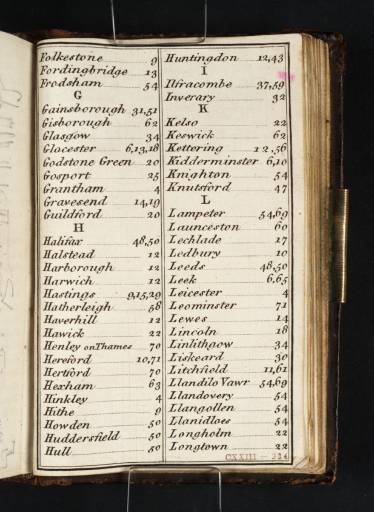 Folkestone 9
Fordingbridge 13
Frodsham 54
G
Gainsborough 31,51
Gisborough 62
Glasgow 34
Glocester 6,13,18
Godstone Green 20
Gosport 25
Grantham 4
Gravesend 14,19
Guildford 20
H
Halifax 48,50
Halstead 12
Harborough 12
Harwich 12
Hastings 9,15,29
Hatherleigh 58
Haverhill 12
Hawick 22
Henley on Thames 70
Hereford 10,71
Hertford 70
Hexham 63
Hinkley 4
Hithe 9
Howden 50
Huddersfield 50
Hull 50
Huntingdon 12,43
I
Ilfracombe 37,59
Inverary 32
K
Kelso 22
Keswick 62
Kettering 12,56
Kidderminster 6,10
Knighton 54
Knutsford 47
L
Lampeter 54,69
Launceston 60
Lechlade 17
Ledbury 10
Leeds 48,50
Leek 6,65
Leicester 4
Leominster 71
Lewes 14
Lincoln 18
Linlithgow 34
Liskeard 30
Litchfield 11,61
Llandilo Vawr 54,69
Llandovery 54
Llangollen 54
Llanidloes 54
Longholm 22
Longtown 22
CXXIII - 224